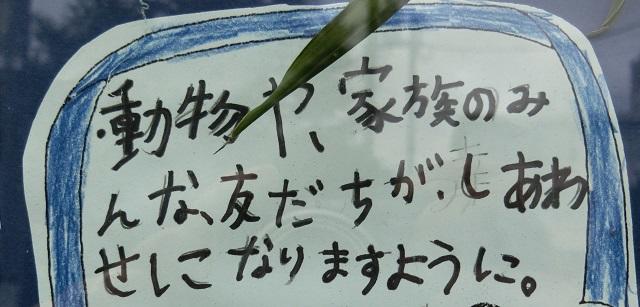 動物や、家族のみ
んな、友だちが、しあわ
せしこなりますように。